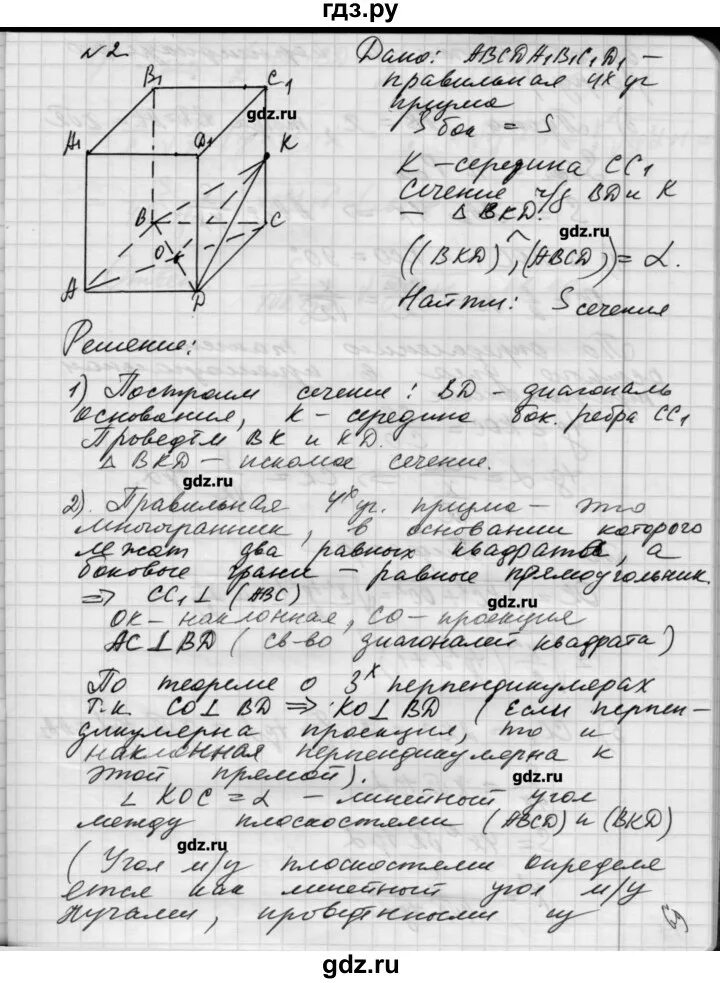 гдз.ру
№2
Дано: ABCDA₁B₁C₁D₁ –
правильная 4х уг
призма
B₁
C₁
gdz.ru
S бок = S
A₁
D₁
K
K – середина CC₁
Сечение ч/з BD и K
B
C
– △ BKD.
gdz.ru
O
((BKD)^,(ABCD))= α.
A
D
Найти: S сечения
Решение:
1) Построим сечение: BD – диагональ
основания, K – середина бок. ребра CC₁
Проведём BK и KD.
△ BKD – искомое сечение.
gdz.ru
2). Правильная 4х уг. призма – это
многогранник, в основании которого
лежат два равных квадрата, а
боковые грани – равные прямоугольник.
⇒ CC₁ ⊥ (ABC)
gdz.ru
OK – наклонная, CO – проекция
AC ⊥ BD ( св-во диагоналей квадрата)
По теореме о 3х перпендикулярах
т.к. CO ⊥ BD ⇒ KO ⊥ BD ( Если перпен-
дикулярна проекция, то и
наклонная перпендикулярна к
этой прямой).
gdz.ru
∠ KOC = α – линейный угол
между плоскостями (ABCD) и (BKD)
gdz.ru
( Угол м/у плоскостями определя
ется как линейный угол м/у
лучами, проведенными из
69
gdz.ru